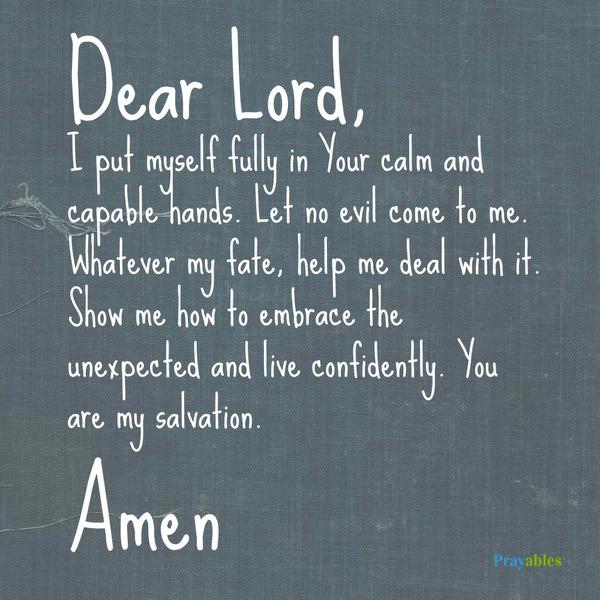 Dear Lord,
I put myself fully in Your calm and
capable hands. Let no evil come to me.
Whatever my fate, help me deal with it.
Show me how to embrace the
unexpected and live confidently. You
are my salvation.
Amen
Prayables